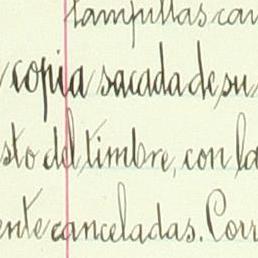 tampillas can
copia sacada de su
sto del timbre, con la
ente canceladas. Corr